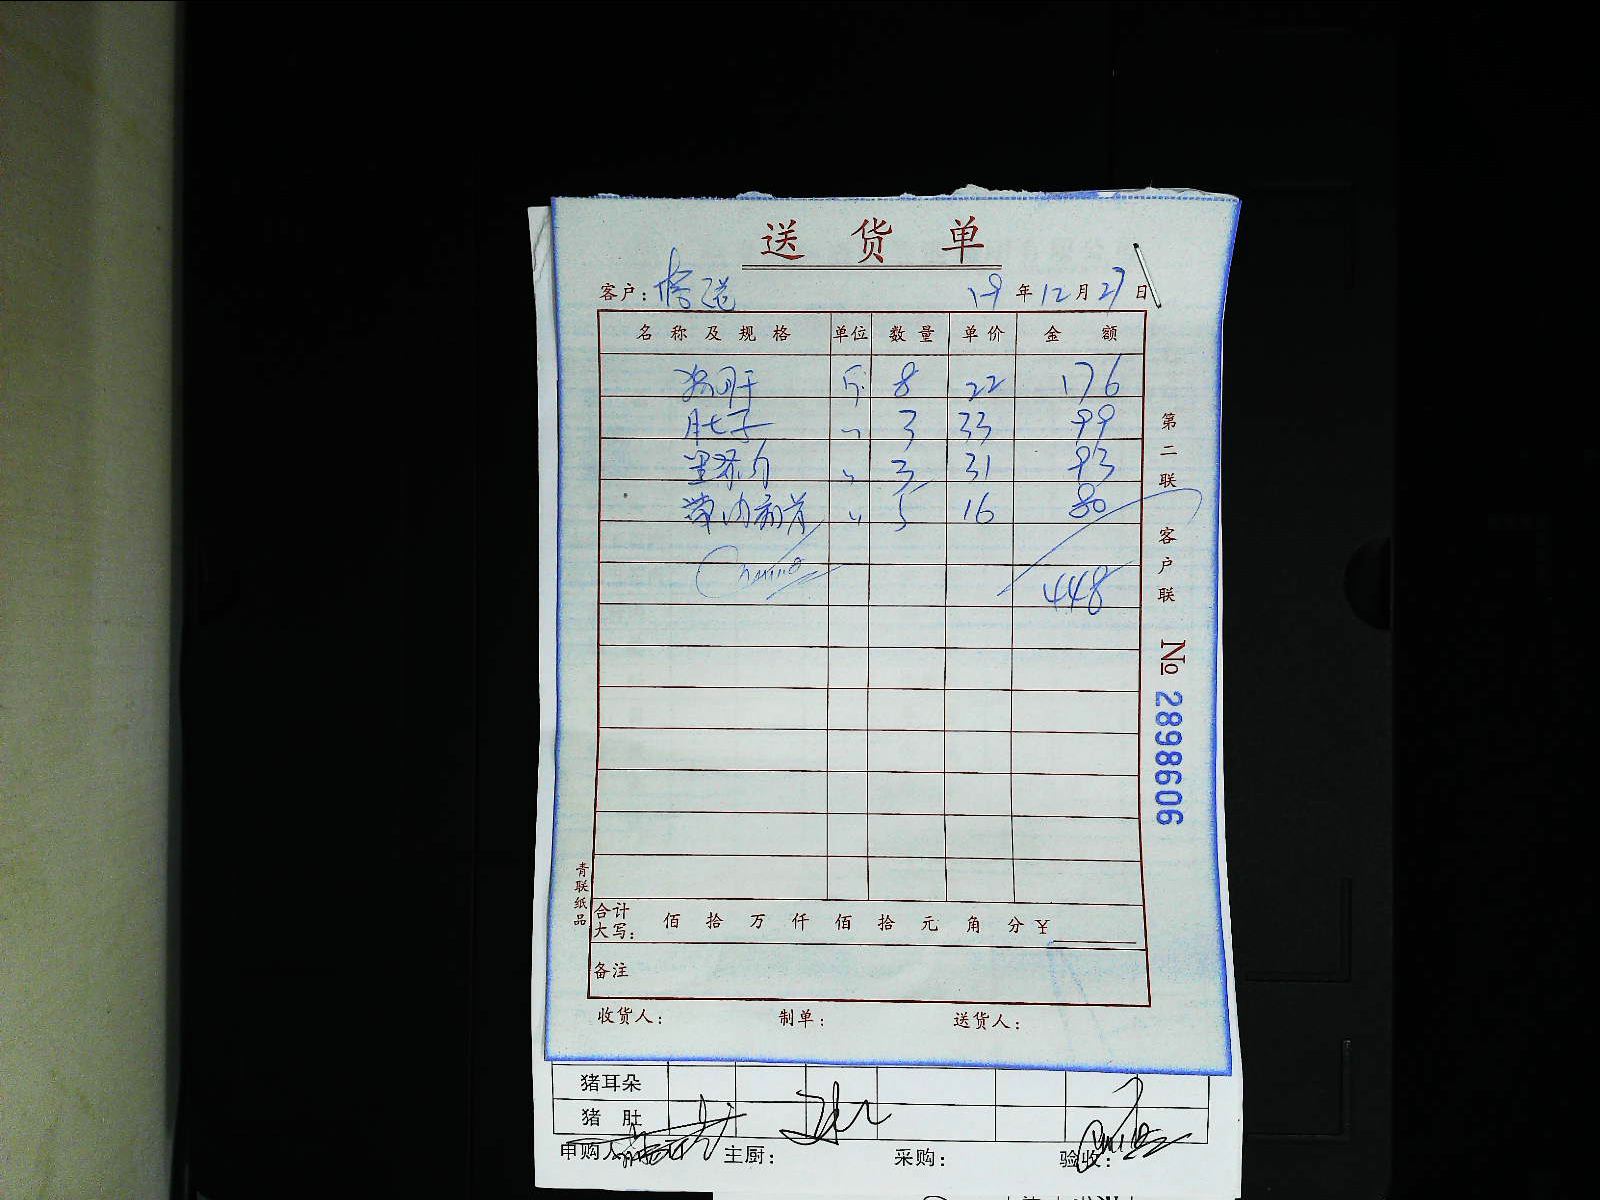 送货单
客户: 19年12月27日
名称及规格 单位 数量 单价 金额
猪肝 斤 8 22 176
肚子 〃 3 33 99
里脊肉 〃 3 31 93
带肉扇骨 〃 5 16 80
448
第二联 客户联
№ 2898606
青联纸品
合计大写: 佰 拾 万 仟 佰 拾 元 角 分 ¥
备注
收货人: 制单: 送货人:
猪耳朵
猪肚
申购人 主厨: 采购: 验收: